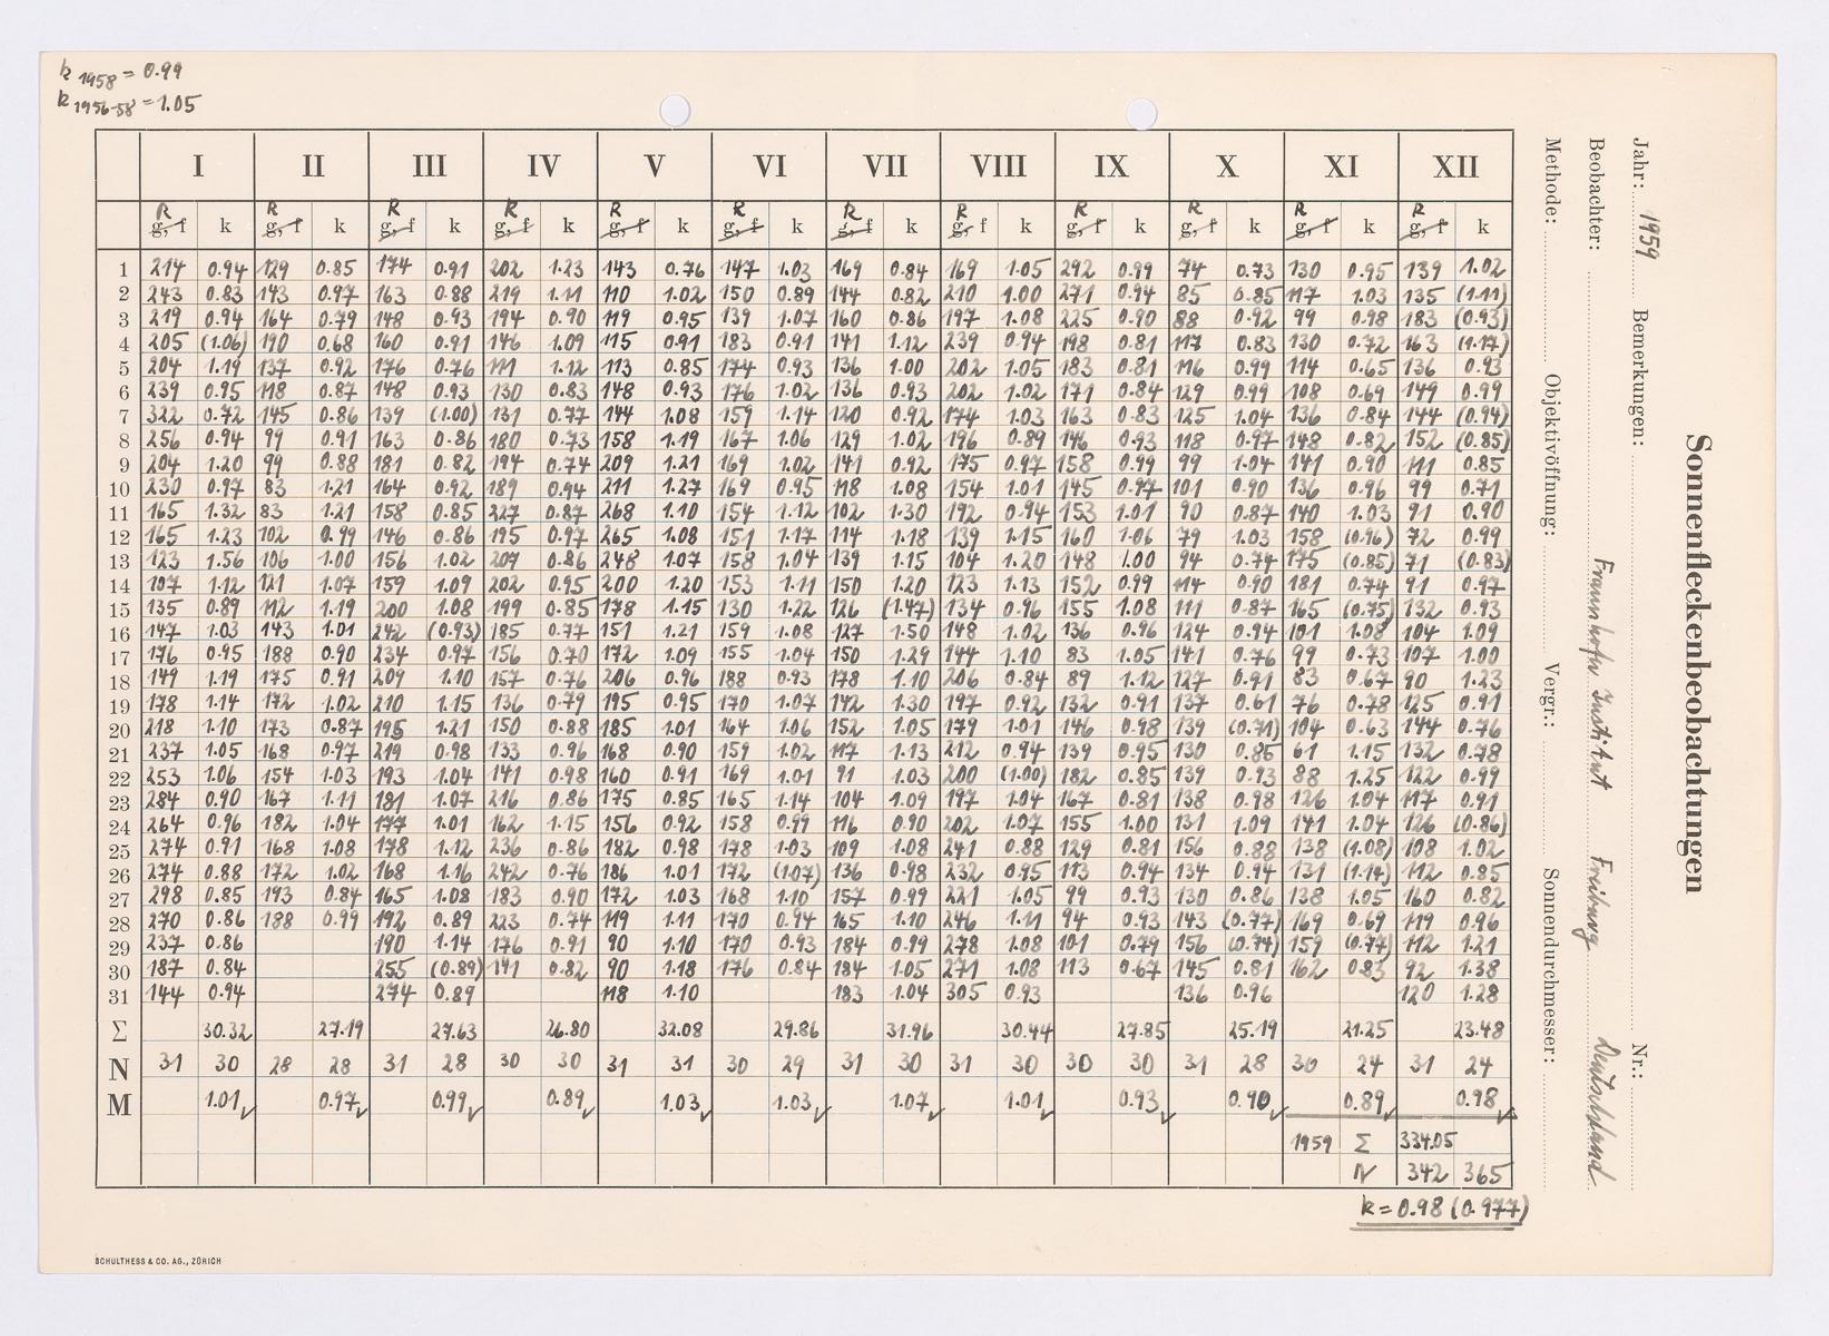 k 1958 = 0.99
k 1956-58 = 1.05
Sonnenfleckenbeobachtungen
Jahr: 1959 Bemerkungen: Nr.:
Beobachter: Fraunhofer Institut Freiburg Deutschland
Methode: Objektivöffnung: Vergr.: Sonnendurchmesser:
I II III IV V VI VII VIII IX X XI XII
R R R R R R R R R R R R
g, f k g, f k g, f k g, f k g, f k g, f k g, f k g, f k g, f k g, f k g, f k g, f k
1 214 0.94 129 0.85 174 0.91 202 1.23 143 0.76 147 1.03 169 0.84 169 1.05 292 0.99 74 0.73 130 0.95 139 1.02
2 243 0.83 143 0.97 163 0.88 219 1.11 110 1.02 150 0.89 144 0.82 210 1.00 271 0.94 85 0.85 117 1.03 135 (1.11)
3 219 0.94 164 0.79 148 0.93 194 0.90 119 0.95 139 1.07 160 0.86 197 1.08 225 0.90 88 0.92 99 0.98 183 (0.93)
4 205 (1.06) 190 0.68 160 0.91 146 1.09 115 0.91 183 0.91 141 1.12 239 0.94 198 0.81 117 0.83 130 0.72 163 (1.17)
5 204 1.19 137 0.92 176 0.76 111 1.12 113 0.85 174 0.93 136 1.00 202 1.05 183 0.81 116 0.99 114 0.65 136 0.93
6 239 0.95 118 0.87 148 0.93 130 0.83 148 0.93 176 1.02 136 0.93 202 1.02 171 0.84 129 0.99 108 0.69 149 0.99
7 322 0.72 145 0.86 139 (1.00) 131 0.77 144 1.08 159 1.14 120 0.92 174 1.03 163 0.83 125 1.04 136 0.84 144 (0.94)
8 256 0.94 99 0.91 163 0.86 180 0.73 158 1.19 167 1.06 129 1.02 196 0.89 146 0.93 118 0.97 148 0.82 152 (0.85)
9 204 1.20 99 0.88 181 0.82 194 0.74 209 1.21 169 1.02 141 0.92 175 0.97 158 0.99 99 1.04 141 0.90 111 0.85
10 230 0.97 83 1.21 164 0.92 189 0.94 211 1.27 169 0.95 118 1.08 154 1.01 145 0.97 101 0.90 136 0.96 99 0.71
11 165 1.32 83 1.21 158 0.85 227 0.87 268 1.10 154 1.12 102 1.30 192 0.94 153 1.01 90 0.87 140 1.03 91 0.90
12 165 1.23 102 0.99 146 0.86 195 0.97 265 1.08 151 1.17 114 1.18 139 1.15 160 1.06 79 1.03 158 (0.96) 72 0.99
13 123 1.56 106 1.00 156 1.02 207 0.86 248 1.07 158 1.04 139 1.15 104 1.20 148 1.00 94 0.74 175 (0.85) 71 (0.83)
14 107 1.12 121 1.07 159 1.09 202 0.95 200 1.20 153 1.11 150 1.20 123 1.13 152 0.99 114 0.90 181 0.74 91 0.97
15 135 0.89 112 1.19 200 1.08 199 0.85 178 1.15 130 1.22 126 (1.47) 134 0.96 155 1.08 111 0.87 165 (0.75) 132 0.93
16 147 1.03 143 1.01 242 (0.93) 185 0.77 151 1.21 159 1.08 127 1.50 148 1.02 136 0.96 124 0.94 101 1.08 104 1.09
17 176 0.95 188 0.90 234 0.97 156 0.70 172 1.09 155 1.04 150 1.29 144 1.10 83 1.05 141 0.76 99 0.73 107 1.00
18 149 1.19 175 0.91 209 1.10 157 0.76 206 0.96 188 0.93 178 1.10 206 0.84 89 1.12 127 0.91 83 0.67 90 1.23
19 178 1.14 172 1.02 210 1.15 136 0.79 195 0.95 170 1.07 142 1.30 197 0.92 132 0.91 137 0.61 76 0.78 125 0.91
20 218 1.10 173 0.87 195 1.21 150 0.88 185 1.01 164 1.06 152 1.05 179 1.01 146 0.98 139 (0.71) 104 0.63 144 0.76
21 237 1.05 168 0.97 219 0.98 133 0.96 168 0.90 159 1.02 117 1.13 212 0.94 139 0.95 130 0.85 61 1.15 132 0.78
22 253 1.06 154 1.03 193 1.04 141 0.98 160 0.91 169 1.01 91 1.03 200 (1.00) 182 0.85 139 0.93 88 1.25 122 0.99
23 284 0.90 167 1.11 181 1.07 216 0.86 175 0.85 165 1.14 104 1.09 197 1.04 167 0.81 138 0.98 126 1.04 117 0.91
24 264 0.96 182 1.04 177 1.01 162 1.15 156 0.92 158 0.99 116 0.90 202 1.07 155 1.00 131 1.09 141 1.04 126 (0.86)
25 274 0.91 168 1.08 178 1.12 236 0.86 182 0.98 178 1.03 109 1.08 241 0.88 129 0.81 156 0.88 138 (1.08) 108 1.02
26 274 0.88 172 1.02 168 1.16 242 0.76 186 1.01 172 (1.07) 136 0.98 232 0.95 113 0.94 134 0.94 131 (1.14) 112 0.85
27 298 0.85 193 0.84 165 1.08 183 0.90 172 1.03 168 1.10 157 0.99 221 1.05 99 0.93 130 0.86 138 1.05 160 0.82
28 270 0.86 188 0.99 192 0.89 223 0.74 119 1.11 170 0.94 165 1.10 246 1.11 94 0.93 143 (0.77) 169 0.69 119 0.96
29 237 0.86 190 1.14 176 0.91 90 1.10 170 0.93 184 0.99 278 1.08 101 0.79 156 (0.74) 159 (0.77) 112 1.21
30 187 0.84 255 (0.89) 141 0.82 90 1.18 176 0.84 184 1.05 271 1.08 113 0.67 145 0.81 162 0.83 92 1.38
31 144 0.94 274 0.89 118 1.10 183 1.04 305 0.93 136 0.96 120 1.28
Σ 30.32 27.19 27.63 26.80 32.08 29.86 31.96 30.44 27.85 25.19 21.25 23.48
N 31 30 28 28 31 28 30 30 31 31 30 29 31 30 31 30 30 30 31 28 30 24 31 24
M 1.01 0.97 0.99 0.89 1.03 1.03 1.07 1.01 0.93 0.90 0.89 0.98
1959 Σ 334.05
N 342 365
k = 0.98 (0.977)
SCHULTHESS & CO. AG., ZÜRICH